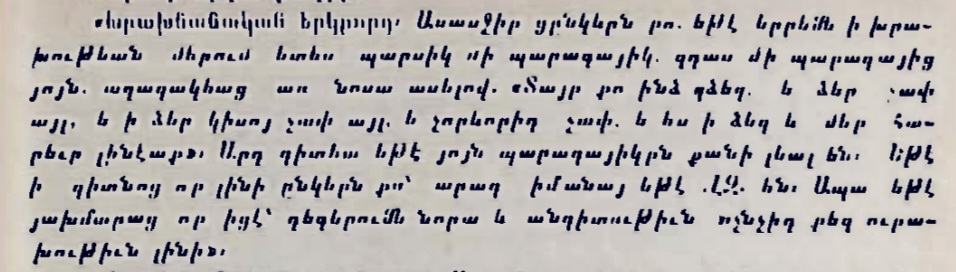 «Խրախճանականն երկրորդ. Ասասջիր ցընկերն քո. եթէ երբեմն ի խրա-
խութեան մերում ետես պարսիկ մի պարագայիկ. զդաս մի պարագայից
յոյն. աղաղակեաց առ նոսա ասելով. «Տայր քո ինձ զձեզ. և ձեր չափ
այլ, և ի ձեր կիսոյ չափ այլ. և չորևորիդ չափ. և ես ի ձեզ և մեր հա-
րեւր լինէաք»։ Արդ գիտեա եթէ յոյն պարագայիկրն քանի լեալ են։ Եթէ
ի գիտնոց որ լինի ընկերն քո՝ արագ իմանայ եթէ .ԼԶ. են։ Ապա եթէ
յախմարաց որ իցէ՝ դեգերումն նորա և անգիտութիւն ոչնչիդ քեզ ուրա-
խութիւն լինի»։